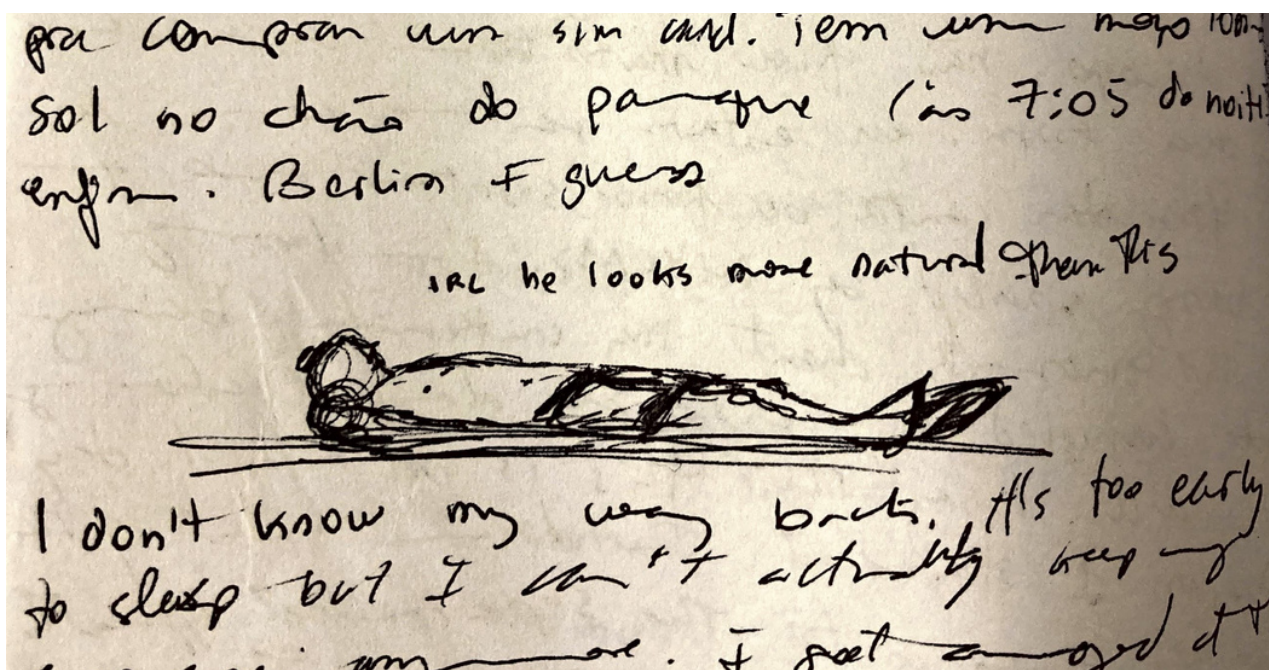 pra comprar um sim card. Tem um moço tom
sol no chão do parque (às 7:05 da noite
enfim. Berlin I guess
IRL he looks more natural than this
I don't know my way back. It's too early
to sleep but I can't actually keep my
anymore. I get